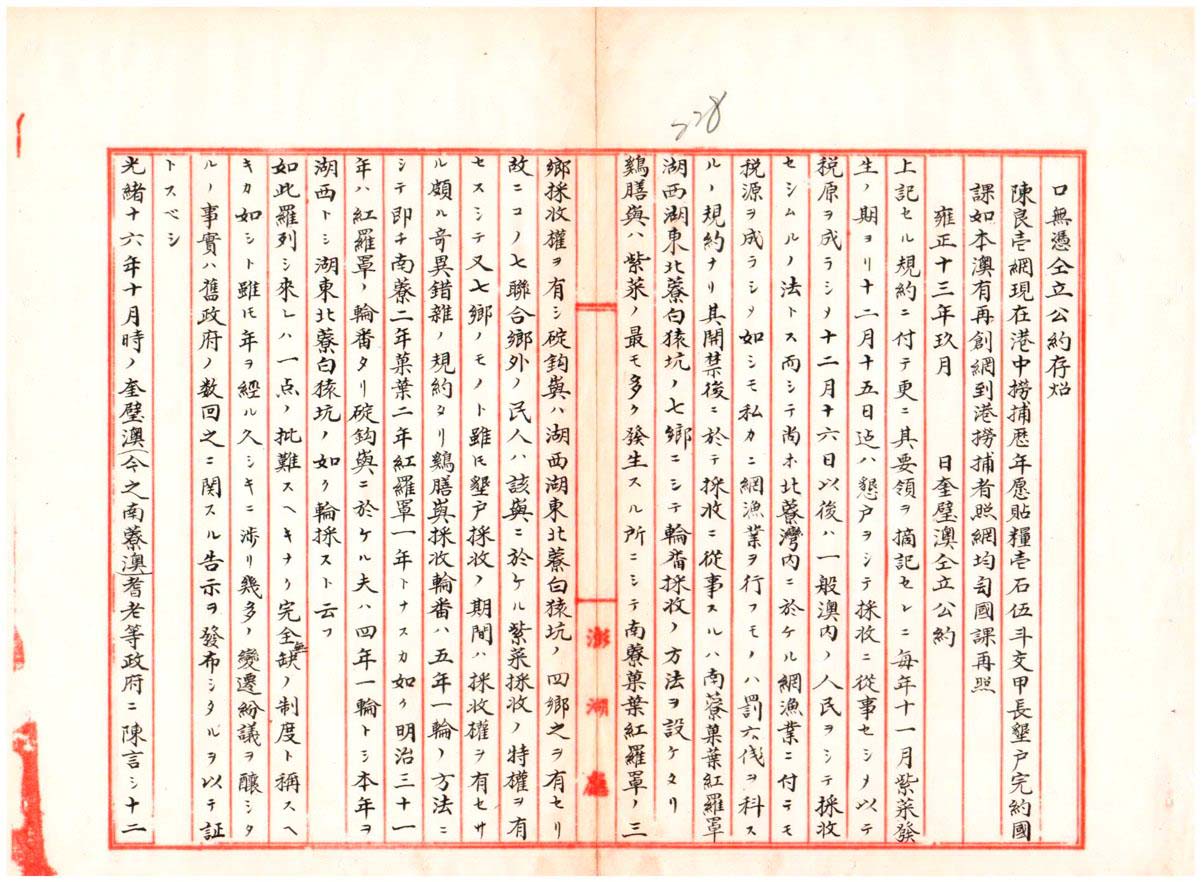 228
口無憑仝立公約存炤
陳良壱網現在港中撈捕歴年愿貼糧壱石伍斗交甲長墾户完約國
課如本澳有再創網到港撈捕者照網均匀國課再照
雍正十三年玖月　　日奎璧澳仝立公約
上記セル規約ニ付テ更ニ其要領ヲ摘記セレニ毎年十一月紫菜發
生ノ期ヨリ十二月十五日迄ハ懇户ヲシテ採收ニ從事セシメ以テ
税原ヲ成ラシメ十二月十六日以後ハ一般澳内ノ人民ヲシテ採收
セシムルノ法トス而シテ尚ホ北藔灣内ニ於ケル網漁業ニ付テモ
税源ヲ成ラシメ如シモ私カニ網漁業ヲ行フモノハ罰六伐ヲ科ス
ルノ規約ナリ其開禁後ニ於テ採收ニ從事スルハ南藔菓葉紅羅罩
湖西湖東北藔白猿坑ノ七郷ニシテ輪番採收ノ方法ヲ設ケタリ
鷄膳與ハ紫菜ノ最モ多ク發生スル所ニシテ南藔菓葉紅羅罩ノ三
澎湖廳
郷採收權ヲ有シ碇鈎與ハ湖西湖東北藔白猿坑ノ四郷之ヲ有セリ
故ニコノ七聯合郷外ノ民人ハ該與ニ於ケル紫菜採收ノ特權ヲ有
セスシテ又七郷ノモノト雖𪜈墾户採收ノ期間ハ採收權ヲ有セサ
ル頗ル竒異錯雜ノ規約タリ鷄膳與採收輪番ハ五年一輪ノ方法ニ
シテ即チ南藔二年菓葉二年紅羅罩一年トナスカ如ク明治三十一
年ハ紅羅罩ノ輪番タリ碇鈎與ニ於ケル夫ハ四年一輪トシ本年ヲ
湖西トシ湖東北藔白猿坑ノ如ク輪採スト云フ
如此羅列シ來レハ一点ノ批難スヘキナク完全無缺ノ制度ト稱スヘ
キカ如シト雖𪜈年ヲ經ル久シキニ渉リ幾多ノ變遷紛議ヲ釀シタ
ルノ事實ハ舊政府ノ数回之ニ関スル告示ヲ發布シタルヲ以テ証
トスベシ
光緒十六年十月時ノ奎璧澳(今之南藔澳)耆老等政府ニ陳言シ十二